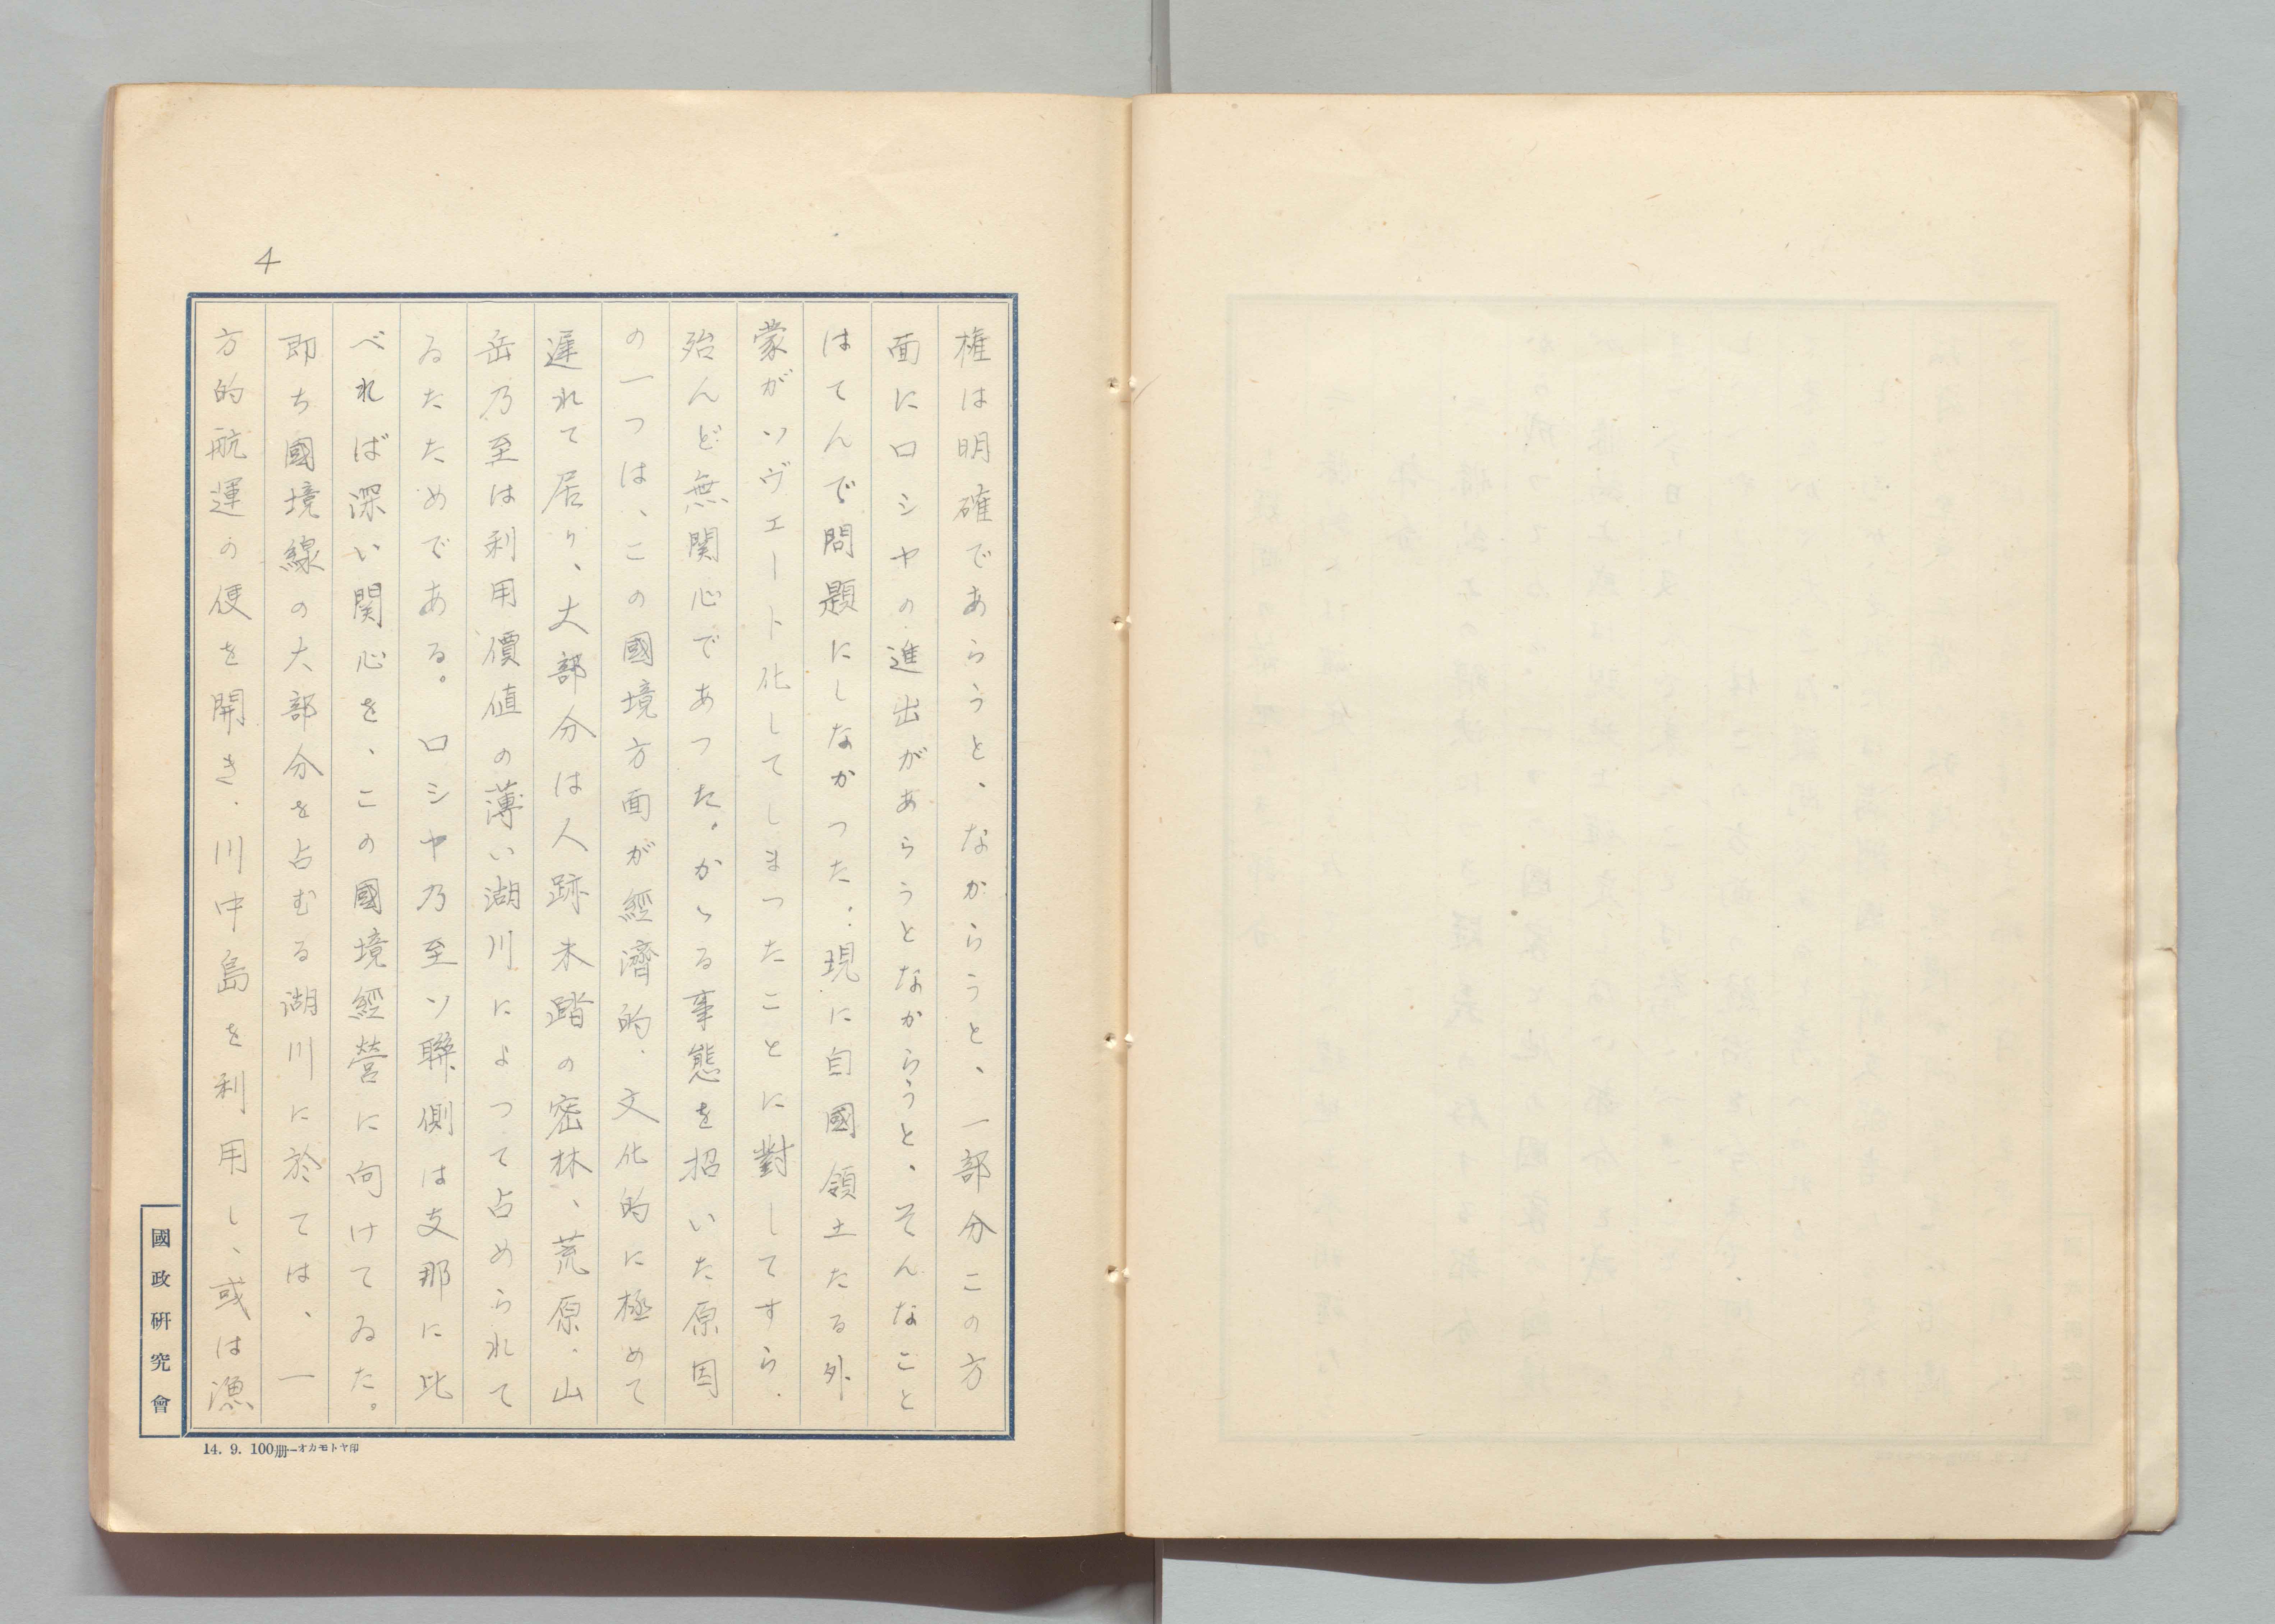 4
権は明確であらうと、なからうと、一部分この方
面にロシヤの進出があらうとなからうと、そんなこと
はてんで問題にしなかつた。現に自國領土たる外
蒙がソヴエート化してしまつたことに對してすら、
殆んど無関心であつた。かゝる事態を招いた原因
の一つは、この國境方面が經濟的、文化的に極めて
遅れて居り、大部分は人跡未踏の密林、荒原、山
岳乃至は利用價値の薄い湖川によつて占められて
ゐたためである。ロシヤ乃至ソ聯側は支那に比
べれば深い関心を、この國境經營に向けてゐた。
即ち國境線の大部分を占むる湖川に於ては、一
方的航運の便を開き、川中島を利用し、或は漁
國政研究會
14. 9. 100册―オカモトヤ印